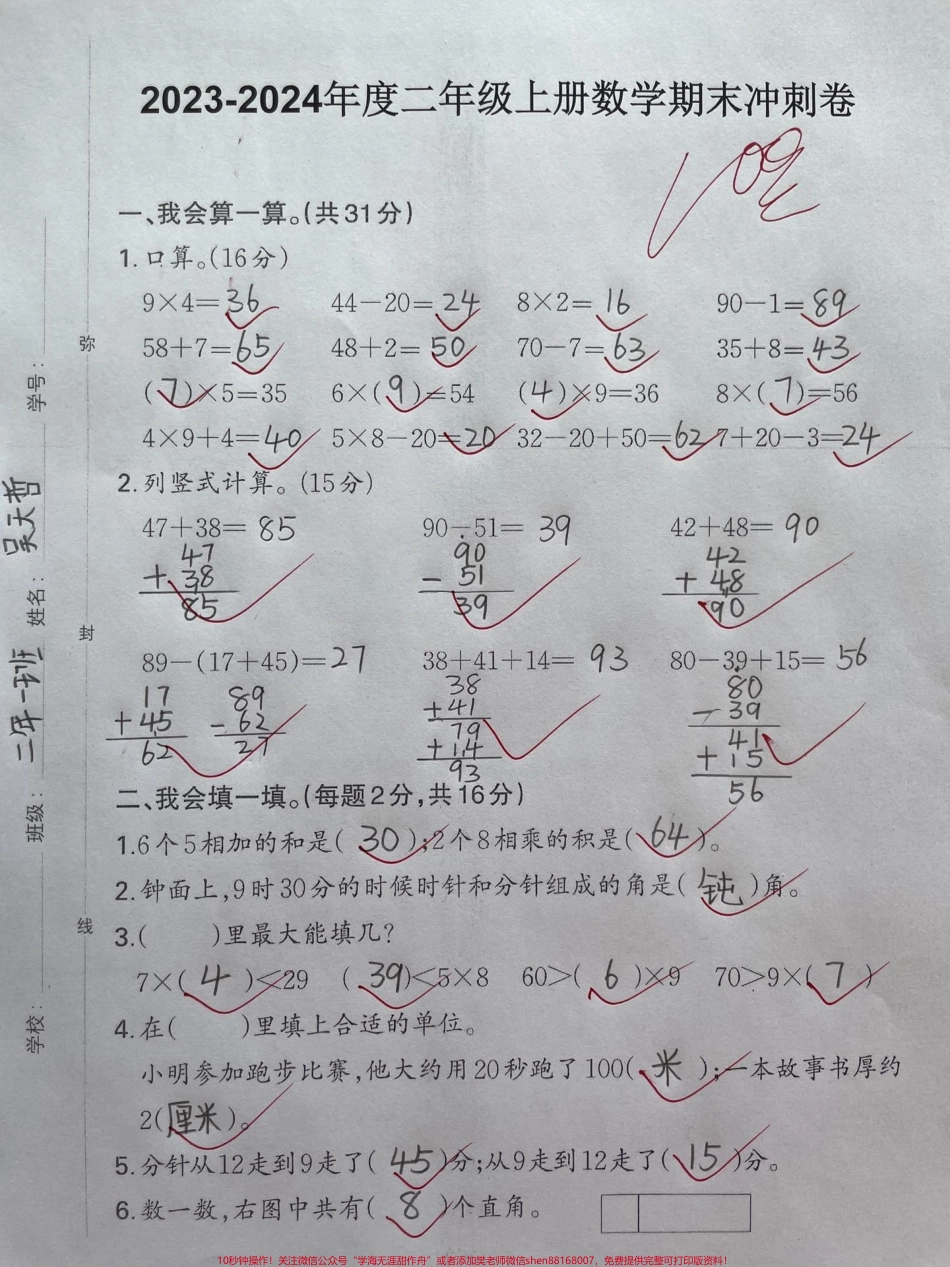 2023-2024年度二年级上册数学期末冲刺卷
100
一、我会算一算。(共31分)
1. 口算。(16分)
9×4=36 44-20=24 8×2=16 90-1=89
58+7=65 48+2=50 70-7=63 35+8=43
(7)×5=35 6×(9)=54 (4)×9=36 8×(7)=56
4×9+4=40 5×8-20=20 32-20+50=62 7+20-3=24
2. 列竖式计算。(15分)
47+38=85 90-51=39 42+48=90
47 90 42
+38 -51 +48
85 39 90
89-(17+45)=27 38+41+14=93 80-39+15=56
17 89 38 80
+45 -62 +41 -39
62 27 79 41
+14 +15
93 56
二、我会填一填。(每题2分,共16分)
1.6个5相加的和是(30);2个8相乘的积是(64)。
2.钟面上,9时30分的时候时针和分针组成的角是(钝)角。
3.( )里最大能填几?
7×(4)<29 (39)<5×8 60>(6)×9 70>9×(7)
4.在( )里填上合适的单位。
小明参加跑步比赛,他大约用20秒跑了100(米);一本故事书厚约
2(厘米)。
5.分针从12走到9走了(45)分;从9走到12走了(15)分。
6.数一数,右图中共有(8)个直角。
学校: 班级:二年一班 姓名:吴天哲 学号:
弥
封
线
10秒钟操作!关注微信公众号“学海无涯甜作舟”或者添加樊老师微信shen88168007,免费提供完整可打印版资料!